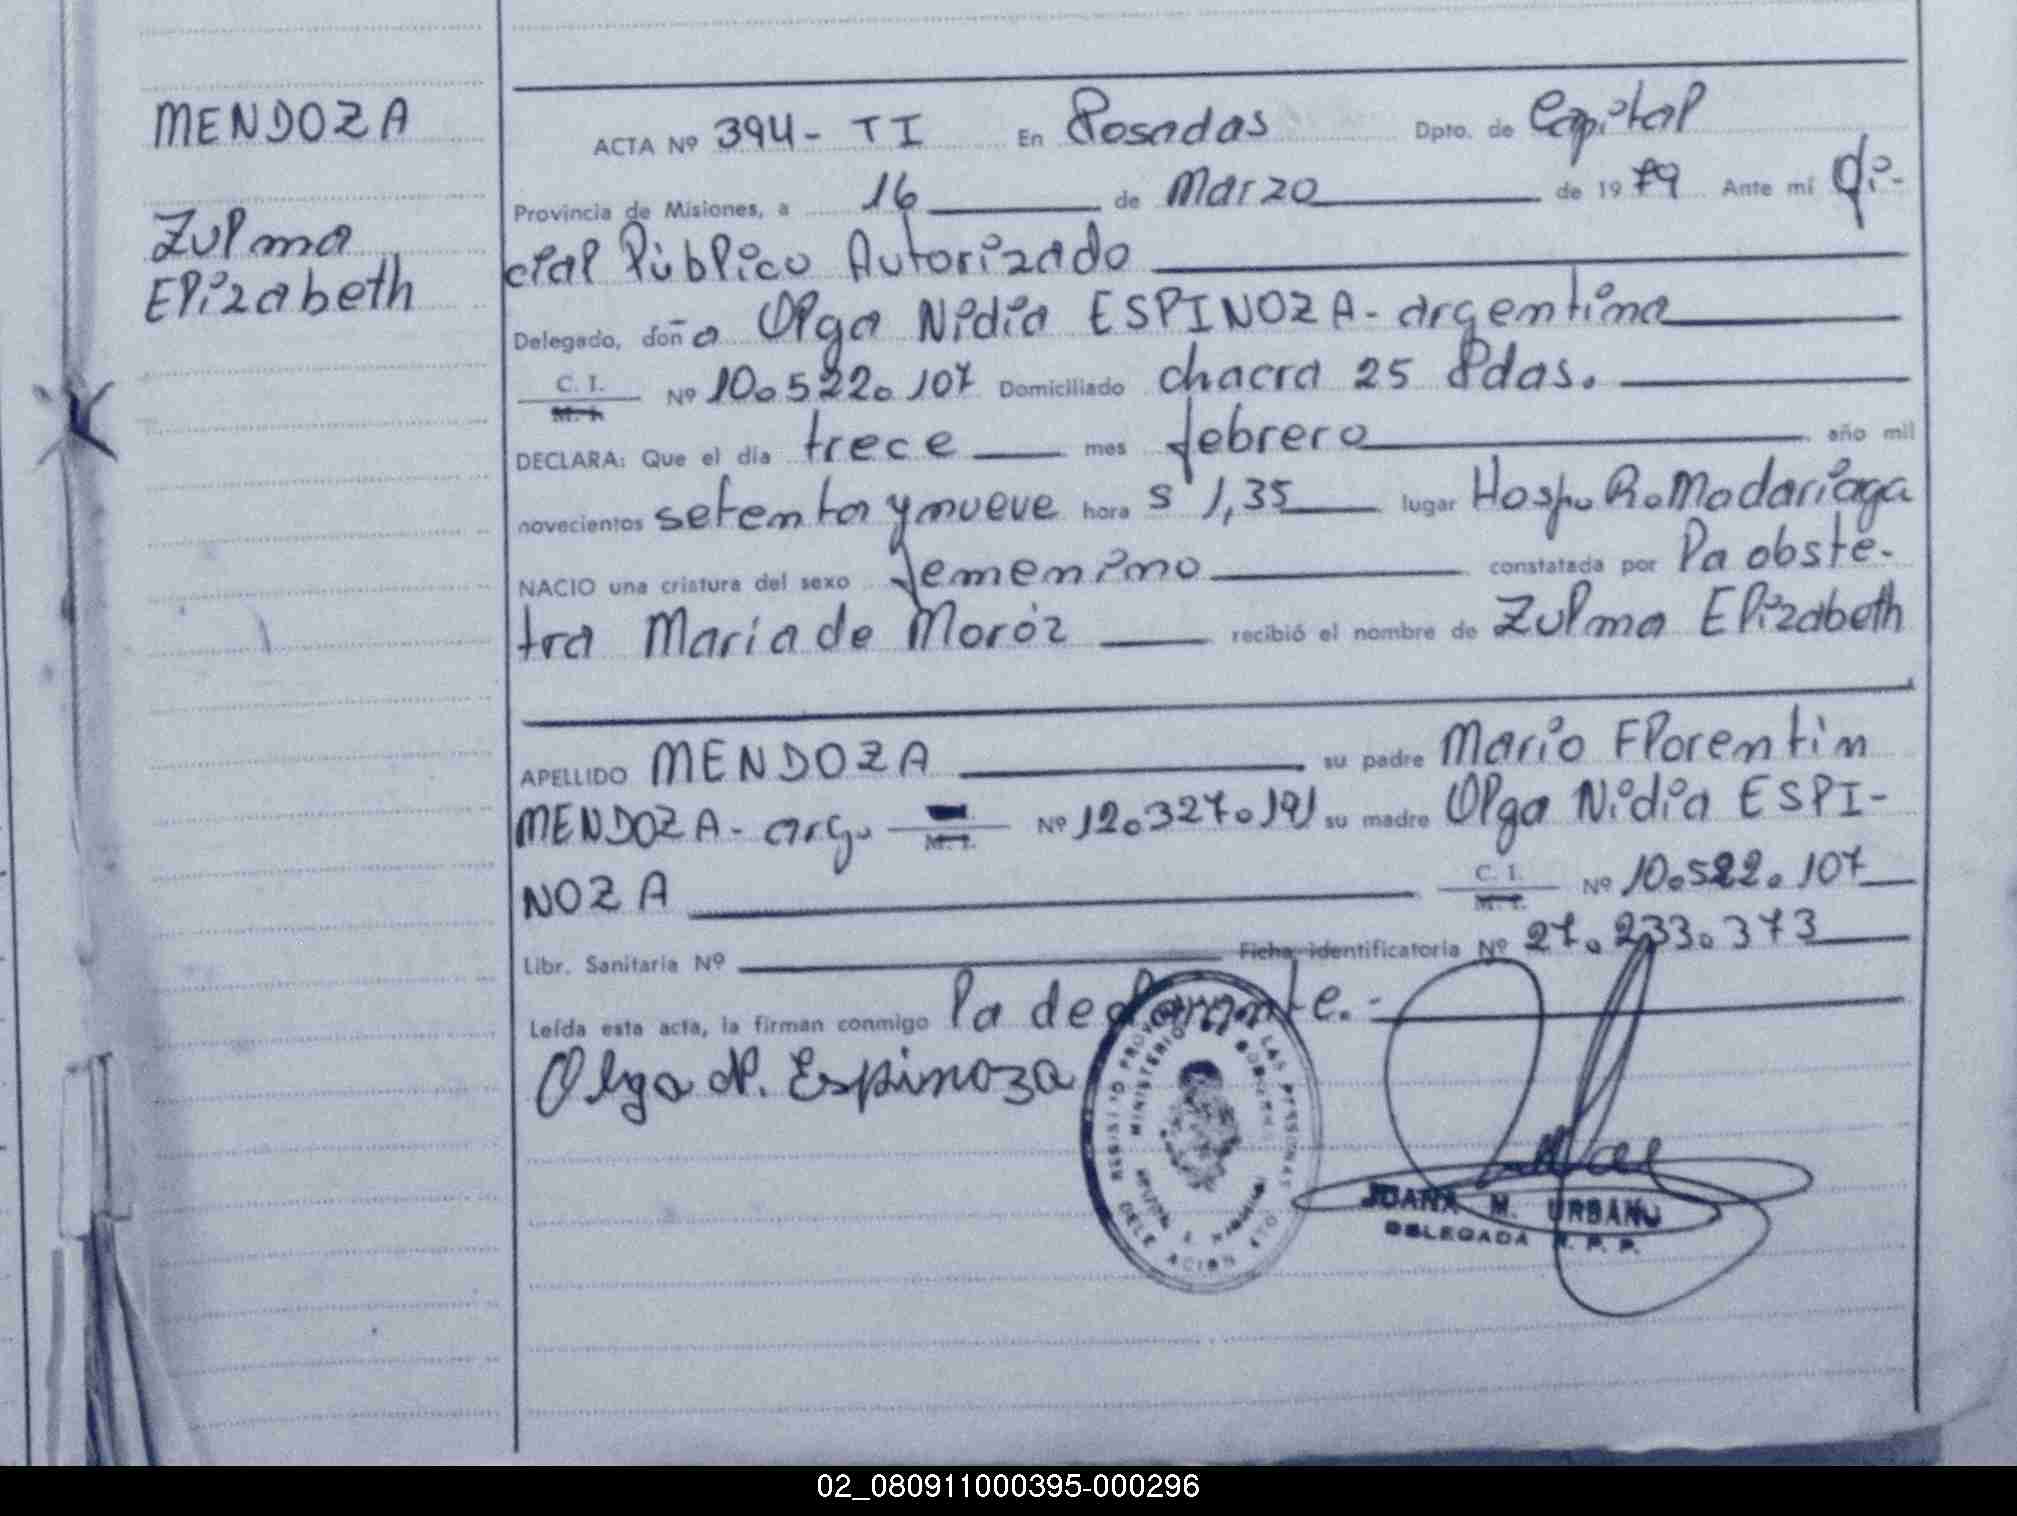 MENDOZA
Zulma
Elizabeth
ACTA Nº 394- TI En Posadas Dpto. de Capital
Provincia de Misiones, a 16 de Marzo de 1979 Ante mí ofi-
cial Público Autorizado
Delegado, doña Olga Nidia ESPINOZA- argentina
C. I.
M. I. Nº 10.522.107 Domiciliado chacra 25 Pdas.
DECLARA: Que el día trece mes febrero año mil
novecientos setenta y nueve hora s 1,35 lugar Hosp. R. Madariaga
NACIO una criatura del sexo femenino constatada por la obste-
tra María de Moróz recibió el nombre de Zulma Elizabeth
APELLIDO MENDOZA su padre Mario Florentin
MENDOZA- arg. M. I. Nº 12.327.191 su madre Olga Nidia ESPI-
NOZA C. I. M. I. Nº 10.522.107
Libr. Sanitaria Nº Ficha identificatoria Nº 27.233.373
Leída esta acta, la firman conmigo la declarante.-
Olga N. Espinoza
REGISTRO PROV LAS PERSONAS
MINISTERIO GOBIERNO
DELEGACION 4TO
JUANA M. URBANO
DELEGADA R. P. P.
02_080911000395-000296